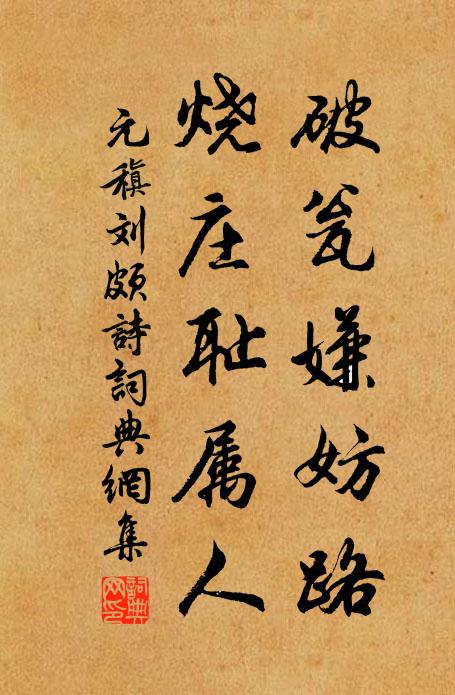 破瓮嫌妨路
烧庄耻属人
元稹刘颇詩詞典網集
詞典
网印